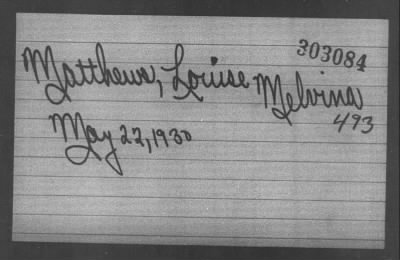 303084
Matthews, Louise Melvina
493
May 22, 1930